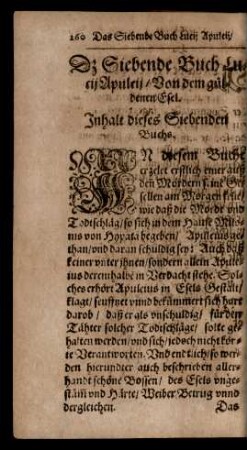 260 Das Siebende Buch Lucij Apuleij/
Dz Siebende Buch Lu-
cij Apuleij / Von dem gül-
denen Esel.
Inhalt dieses Siebenden
Buchs.
IN diesem Buche
erzelet erstlich einer auß
den Mördern seinē Ge-
sellen am Morgen frühe/
wie daß die Mordt vnd
Todtschläg / so sich in dem Hause Milo-
nis von Hypata begeben / Apuleius ge-
than / vnd daran schuldig sey: Auch daß
keiner vnter jhnen / sondern allein Apule-
ius derenthalbē in Verdacht stehe. Sol-
ches erhört Apuleius in Esels Gestalt/
klagt / seufftzet vnnd bekümmert sich hart
darob / daß er als vnschuldig / für den
Tähter solcher Todtschläge / solte ge-
halten werden / vnd sich / jedoch nicht kön-
te Verantworten. Vnd endtlich / so wer-
den hierundter auch beschrieben aller-
handt schöne Bossen / des Esels vnge-
stüm vnd Härte / Weiber Betrug vnnd
dergleichen.
Das